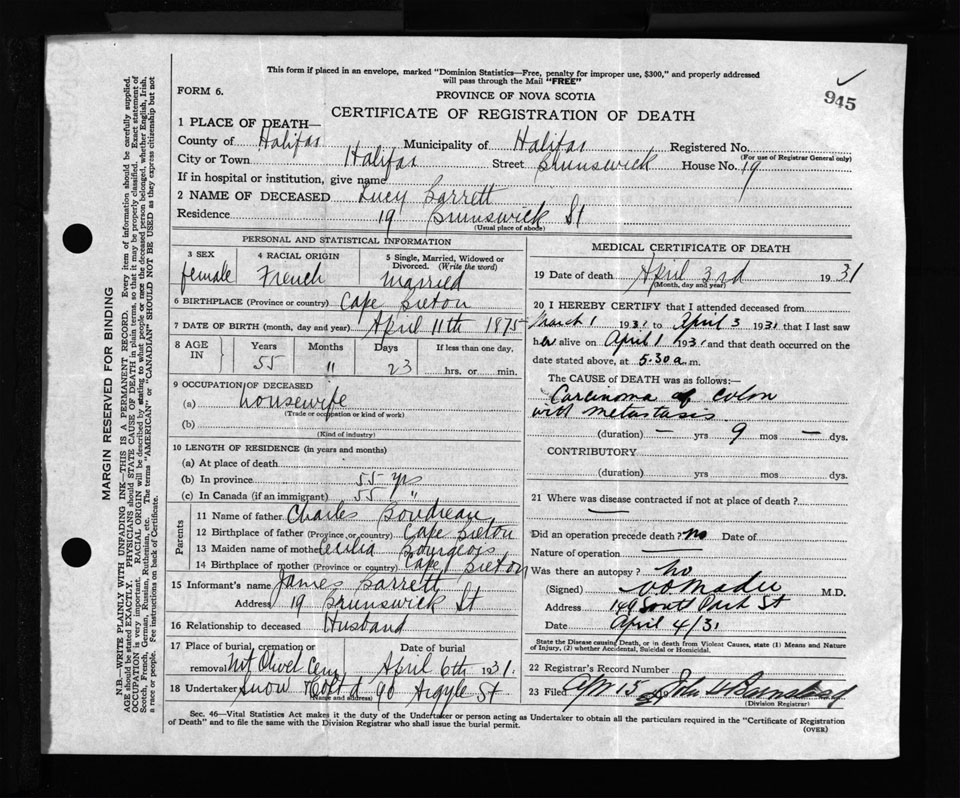 This form if placed in an envelope, marked "Dominion Statistics—Free, penalty for improper use, $300," and properly addressed
will pass through the Mail "FREE"
945
FORM 6.
PROVINCE OF NOVA SCOTIA
CERTIFICATE OF REGISTRATION OF DEATH
1 PLACE OF DEATH—
County of Halifax Municipality of Halifax Registered No.
(For use of Registrar General only)
City or Town Halifax Street Brunswick House No. 19
If in hospital or institution, give name
2 NAME OF DECEASED Lucy Barrett
Residence 19 Brunswick St
(Usual place of abode)
PERSONAL AND STATISTICAL INFORMATION
3 SEX 4 RACIAL ORIGIN 5 Single, Married, Widowed or
Divorced. (Write the word)
female French Married
6 BIRTHPLACE (Province or country) Cape Breton
7 DATE OF BIRTH (month, day and year) April 11th 1875
8 AGE IN Years Months Days If less than one day,
55 11 23 hrs. or min.
9 OCCUPATION OF DECEASED
(a) housewife
(Trade or occupation or kind of work)
(b)
(Kind of industry)
10 LENGTH OF RESIDENCE (in years and months)
(a) At place of death
(b) In province 55 yrs
(c) In Canada (if an immigrant) 55 "
Parents
11 Name of father Charles Boudreau
12 Birthplace of father (Province or country) Cape Breton
13 Maiden name of mother Cecilia Bourgeois
14 Birthplace of mother (Province or country) Cape Breton
15 Informant's name James Barrett
Address 19 Brunswick St
16 Relationship to deceased Husband
17 Place of burial, cremation or Date of burial
removal Mt Olivet Cem April 6th 1931.
18 Undertaker Snow & Co Ltd 90 Argyle St
MEDICAL CERTIFICATE OF DEATH
19 Date of death April 3rd 1931
(Month, day and year)
20 I HEREBY CERTIFY that I attended deceased from
March 1 1931 to April 3 1931 that I last saw
her alive on April 1 1931 and that death occurred on the
date stated above, at 5.30 a.m.
The CAUSE of DEATH was as follows:—
Carcinoma of Colon
with metastasis
(duration) — yrs 9 mos — dys.
CONTRIBUTORY
(duration) yrs mos dys.
21 Where was disease contracted if not at place of death?
Did an operation precede death? no Date of
Nature of operation
Was there an autopsy? no
(Signed) M.D.
Address 149 South Park St
Date April 4/31
State the Disease causing Death, or in death from Violent Causes, state (1) Means and Nature
of Injury, (2) whether Accidental, Suicidal or Homicidal.
22 Registrar's Record Number
23 Filed 15 John
(Division Registrar)
Sec. 46—Vital Statistics Act makes it the duty of the Undertaker or person acting as Undertaker to obtain all the particulars required in the "Certificate of Registration
of Death" and to file the same with the Division Registrar who shall issue the burial permit.
(OVER)
MARGIN RESERVED FOR BINDING
N.B.—WRITE PLAINLY WITH UNFADING INK—THIS IS A PERMANENT RECORD. Every item of information should be carefully supplied.
AGE should be stated EXACTLY. PHYSICIANS should STATE CAUSE OF DEATH in plain terms, so that it may be properly classified. Exact statement of
OCCUPATION is very important. RACIAL ORIGIN will be described by stating to what people or race the deceased person belonged, whether English, Irish,
Scotch, French, German, Russian, Ruthenian, etc. The terms "AMERICAN" or "CANADIAN" SHOULD NOT BE USED as they express citizenship but not
a race or people. See instructions on back of Certificate.